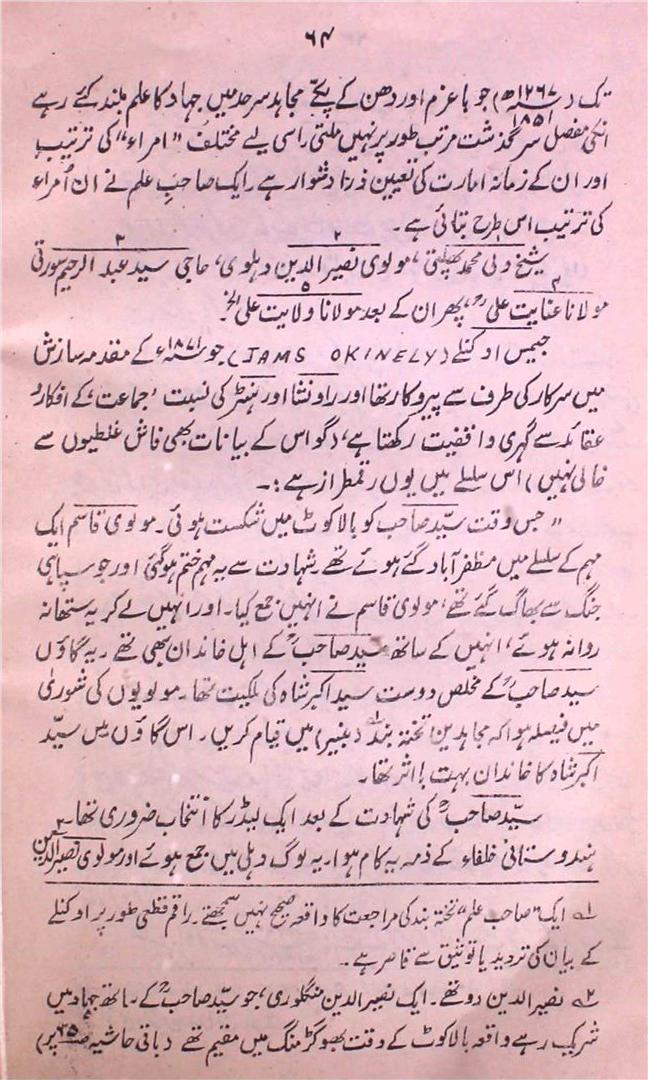 ۶۴
تک (۱۲۶۷ھ ۱۸۵۱ء) جو با عزم اور دھن کے پکے مجاہد سرحد میں جہاد کا علم بلند کئے رہے
انکی مفصل سرگذشت مرتب طور پر نہیں ملتی راسی لیے مختلف "امراء" کی ترتیب
اور ان کے زمانہ امارت کی تعیین ذرنا دشوار ہے۔ ایک صاحبِ علم نے ان اُمراء
کی ترتیب اس طرح بتائی ہے۔
شیخ ولی محمد پھلتی، ۲ مولوی نصیر الدین دہلوی، ۳ حاجی سید عبد الرحیم سورتی
۴ مولانا عنایت علیؒ، پھر ان کے بعد ۵ مولانا ولایت علی الخ
جیمس اوکنلے (JAMS OKINELY) جو ۱۸۷۱ء کے مقدمہ سازش
میں سرکار کی طرف سے پیروکار تھا اور راونشا اور ہنٹر کی نسبت 'جماعت' کے افکار و
عقائد سے گہری واقفیت رکھتا ہے، (گو اس کے بیانات بھی فاش غلطیوں سے
خالی نہیں) اس سلسلے میں یوں رقمطراز ہے:۔
"جس وقت سیّد صاحب کو بالاکوٹ میں شکست ہوئی۔ مولوی قاسم ایک
مہم کے سلسلے میں مظفر آباد گئے ہوئے تھے۔ شہادت سے یہ مہم ختم ہوگئی اور جو سپاہی
جنگ سے بھاگ گئے تھے، مولوی قاسم نے انہیں جمع کیا۔ اور انہیں لے کر یہ ستھانہ
روانہ ہوئے، انہیں کے ساتھ سید صاحبؒ کے اہل خاندان بھی تھے۔ یہ گاؤں
سید صاحبؒ کے مخلص دوست سید اکبر شاہ کی ملکیت تھا۔ مولویوں کی شوریٰ
میں فیصلہ ہوا کہ مجاہدین تختہ بند ؎۱ (بنیر) میں قیام کریں۔ اس گاؤں میں سیّد
اکبر شاہ کا خاندان بہت با اثر تھا۔
سیّد صاحبؒ کی شہادت کے بعد ایک لیڈر کا انتخاب ضروری تھا۔
ہندوستانی خلفاء کے ذمہ یہ کام ہوا۔ یہ لوگ دہلی میں جمع ہوئے اور مولوی نصیر الدین ؎۲
؎۱ ایک "صاحب علم" تختہ بند کی مراجعت کا واقعہ صحیح نہیں سمجھتے۔ راقم قطعی طور پر اوکنلے
کے بیان کی تردید یا توثیق سے قاصر ہے۔
؎۲ نصیر الدین دو تھے۔ ایک نصیر الدین منگلوری، جو سیّد صاحبؒ کے ساتھ جہاد میں
شریک رہے واقعہ بالاکوٹ کے وقت بھوگڑمنگ میں مقیم تھے (باقی حاشیہ صفحہ ۶۵ پر)